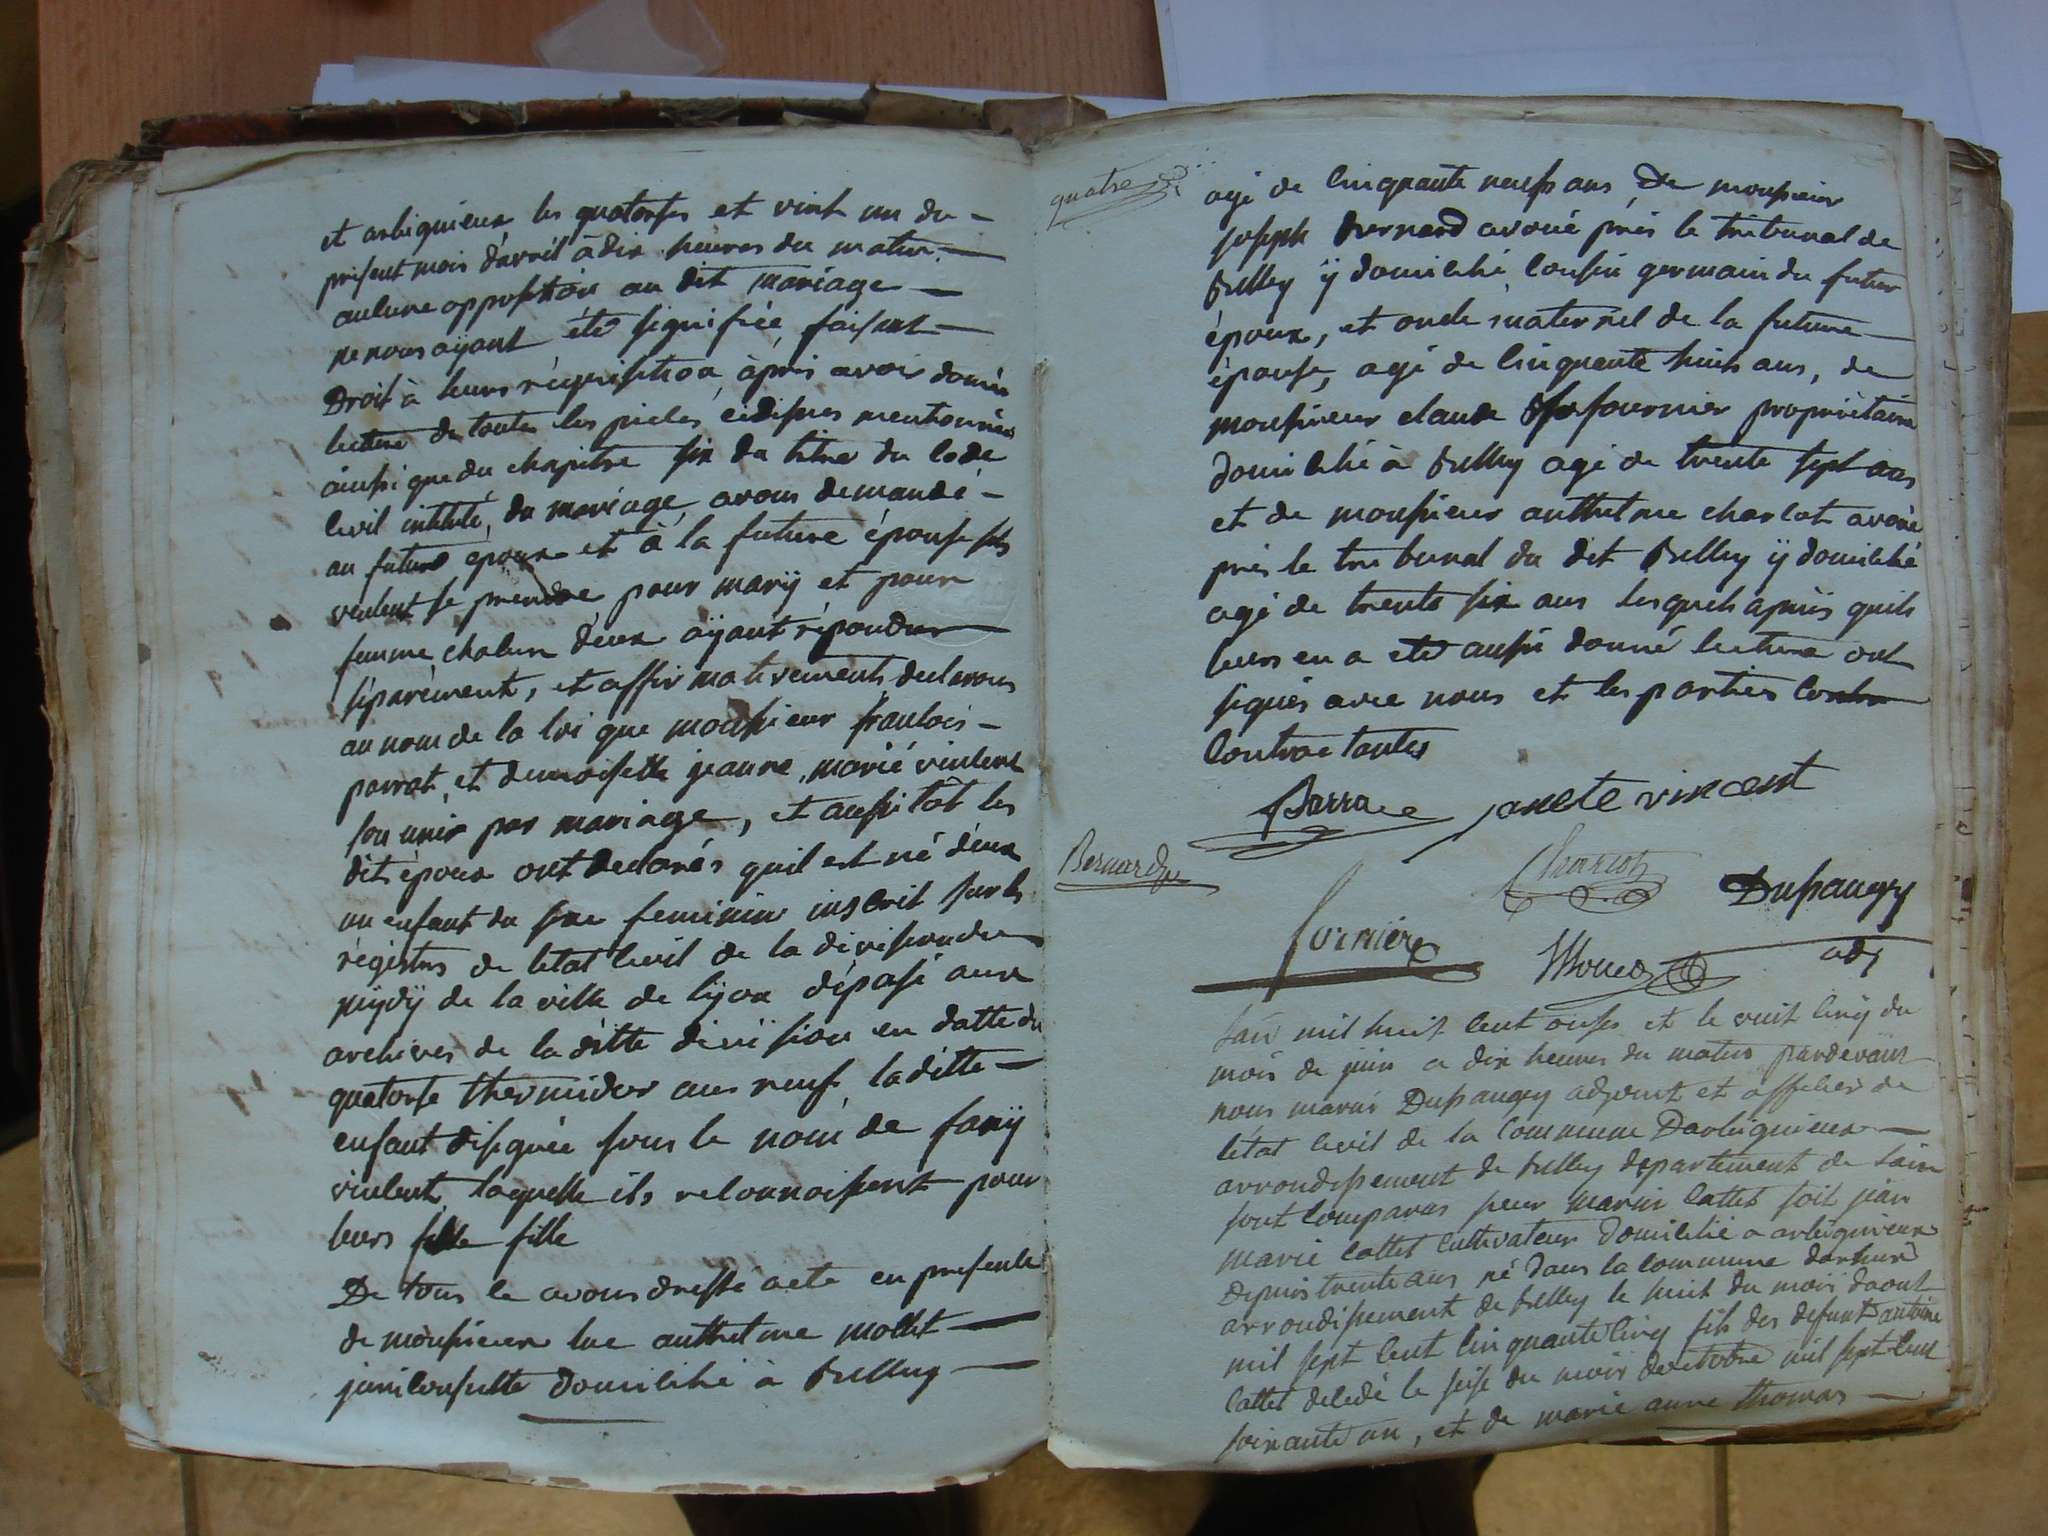 et arbignieux les quatorses et vint un du -
présent mois d'avril à dix heures du matin.
aucune opposition au dit mariage
ne nous aÿant été signifiée, faisant
Droit à leurs réquisition àprès avoir donnée
lecture de toutes les pieces cidisues mentionnées
ainsi que du chapitre six du titre du Code
Civil intitulé, du mariage avons demandé -
au future époux et à la future épouse sils
veulent se prendre pour marÿ et pour
femme, chalcun deux aÿant répondus
séparément, et affirmativements declarons
au nom de la loi que monsieur francois -
parrat, et demoiselle jeanne, marié vincent
son unis par mariage, et aussitôt les
dits époux ont declarés quil est né deux
un enfant du sexe feminin inscrit sur les
régistres de letat Civil de la division du
mÿdÿ de la ville de lÿon déposé aux
archives de la ditte diviision en datte du
quatorse thermidor ans neuf laditte
enfant disignée sous le nom de fanÿ
vincent, laquelle ils reconnoissent pour
leurs fille
De tous ce avons dressé acte en presence
de monsieur luc anthelme mollet
jurisconsulte domicilié à Belley
quatre
agé de cinquante neufs ans De monsieur
joseph Bernard avoué près le tribunal de
Belley ÿ domicilié, Cousin germain du futur
époux, et oncle maternel de la future
épouse, agé de Cinquante huit ans, de
monsieur claude fournier propriétaire
domicilié à Belley agé de trente sept ans
et de monsieur anthelme charlot avoué
près le tribunal du dit Belley ÿ domicilié
agé de trente six ans Lesquels aprèis quils
leurs en a eté aussi donné lecture ont
signés avec nous et les parties contra
Contractantes
Barra janete vincent
Bernard
Charlot
Dupaugey
fournier
Mollet
adj
lan mil huit Cent onse et le vint Cinq du
mois de juin a dix heures du matin pardevant
nous marin Dupaugey adjoint et officier de
létat Civil de la Commune Darbignieux
arrondissement de Belley departement de lain
sont Comparus sieur Marin Cattet soit jean
marie Cattet Cultivateur domicilié a arbignieux
Depuis trente ans né dans la commune
arrondissement de Belley le huit du mois daout
mil sept Cent Cinquante Cinq fils des defunt antoine
Cattet décédé le seise du mois doctobre mil sept Cent
soixante un, et de marie anne thomas